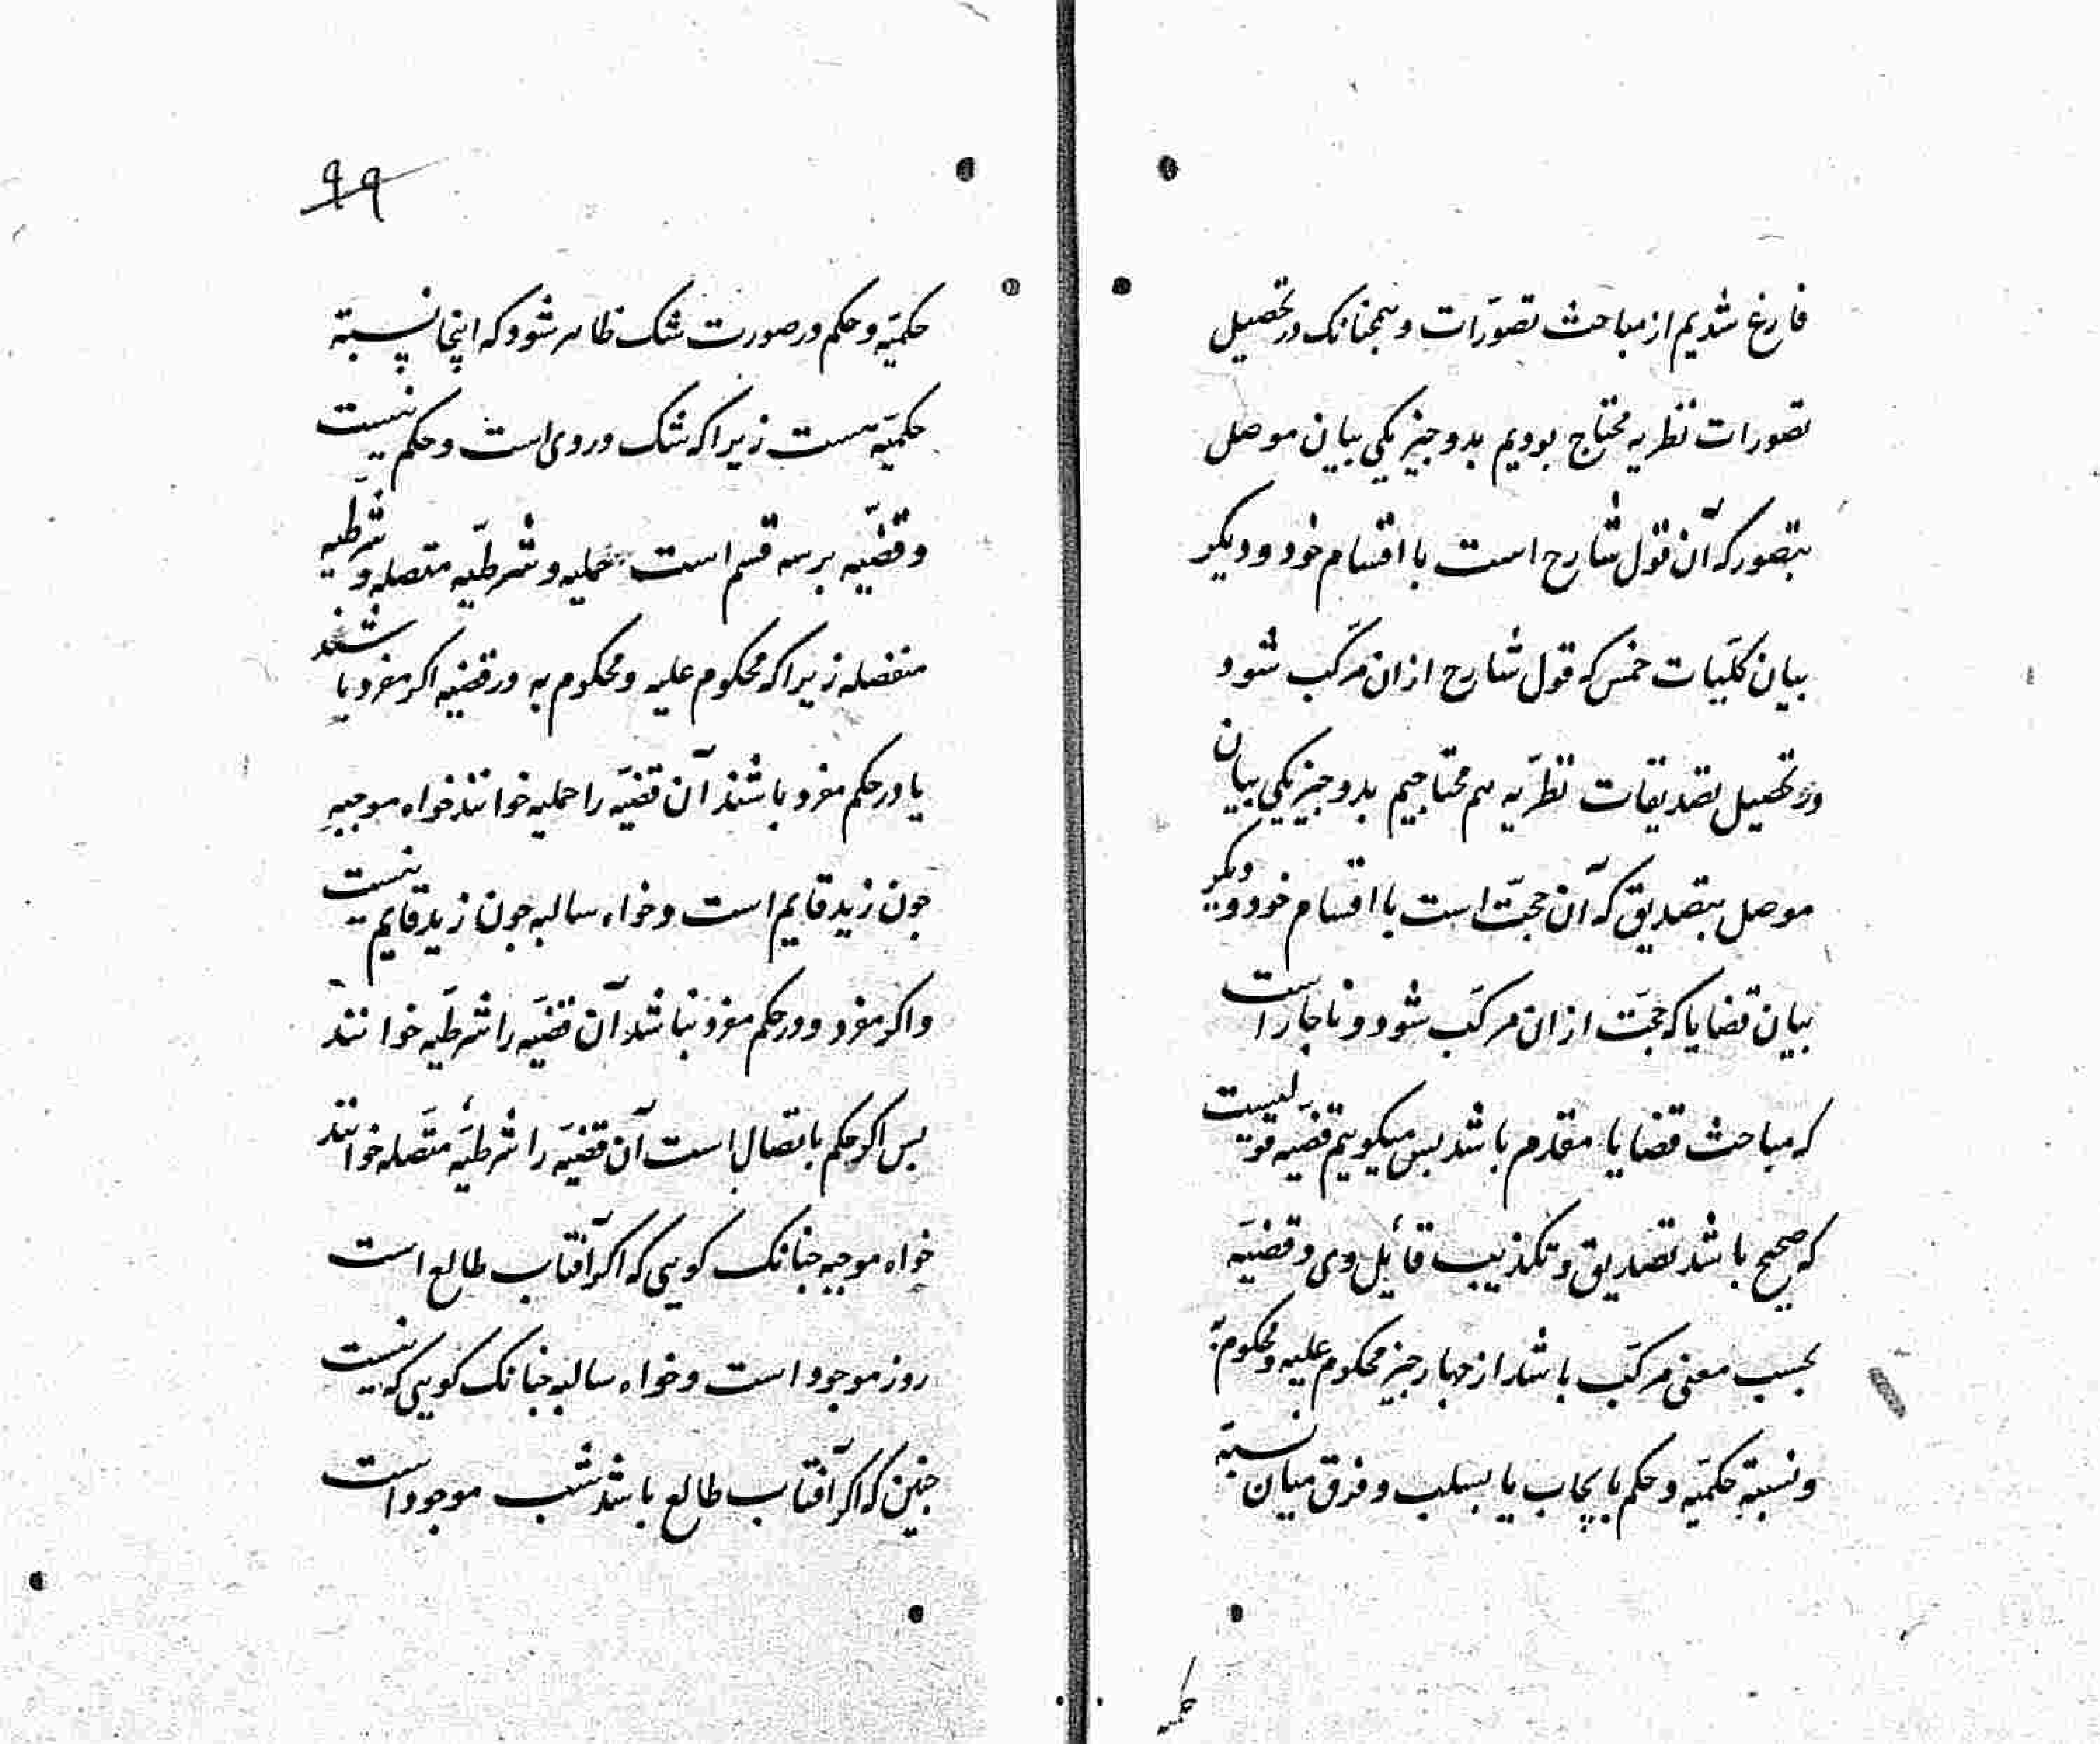 فارغ شدیم از مباحث تصوّرات و همجنانک در تحصیل
تصورات نظریه محتاج بودیم بدو جیز یکی بیان موصل
بتصور که آن قول شارح است با اقسام خود و دیکر
بیان کلّیات خمس که قول شارح ازان مرکّب شود
در تحصیل تصدیقات نظرّیه هم محتاجیم بدو جیز یکی بیان
موصل بتصدیق که آن حجّت است با اقسام خود و دیکر
بیان قضایا که حجّت ازان مرکّب شود و ناجار است
که مباحث قضایا مقدم باشد بس میکوییم قضیّه قولیست
که صحیح باشد تصدیق و تکذیب قائل وی و قضیّه
بحسب معنی مرکّب باشد از جهار جیز محکوم علیه و محکوم به
و نسبة حکمیّه و حکم بایجاب یا بسلب و فرق میان نسبة
حکمیه
۹۹
حکمیّه و حکم در صورت شک ظاهر شود که اینجا نسبة
حکمیّه هست زیرا که شک در وی است و حکم نیست
و قضیّه بر سه قسم است حملیه و شرطیّه متصله و شرطیّه
منفصله زیرا که محکوم علیه و محکوم به در قضیه اکر مفرد باشند
یا در حکم مفرد باشند آن قضیّه را حملیه خوانند خواه موجبه
جون زید قایم است و خواه سالبه جون زید قایم نیست
و اکر مفرد و در حکم مفرد نباشد آن قضیّه را شرطیّه خوانند
بس اکر حکم باتصال است آن قضیّه را شرطیّه متّصله خوانند
خواه موجبه جنانک کویی که اکر آفتاب طالع است
روز موجود است و خواه سالبه جنانک کویی که نیست
جنین که اکر آفتاب طالع باشد شب موجود است